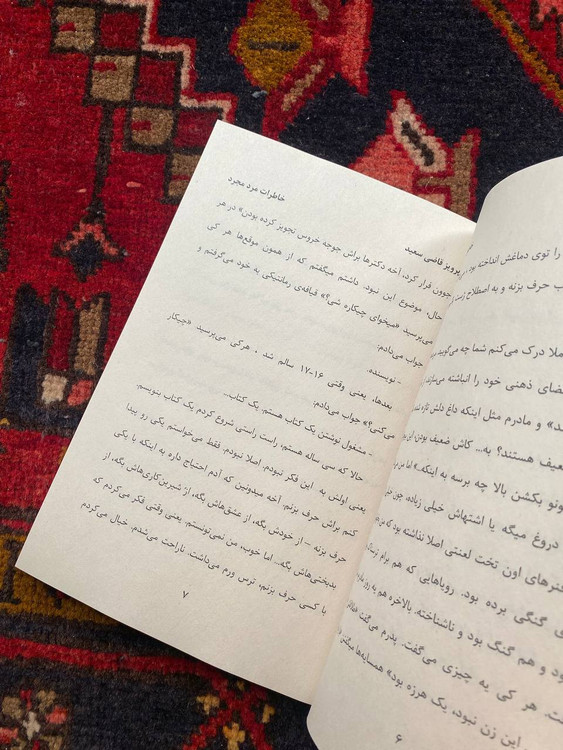 خاطرات مرد مجرد
پرویز قاضی سعید
چون فرار کرد. آخه دکترها براش جوجه خروس تجویز کرده بودن» در هر
حال، موضوع این نبود. داشتم میگفتم که از همون موقع‌ها هر کی
می‌پرسید «میخوای چیکاره شی؟» قیافه‌ی رمانتیکی به خود می‌گرفتم و
جواب می‌دادم:
- نویسنده.
بعدها، یعنی وقتی ۱۶-۱۷ سالم شد ، هرکی می‌پرسید «چیکار
می‌کنی؟» جواب می‌دادم:
- مشغول نوشتن یک کتاب هستم. یک کتاب...
حالا که سی ساله هستم، راست راستی شروع کردم یک کتاب بنویسم.
یعنی اولش به این فکر نبودم. اصلا نبودم. فقط می‌خواستم یکی رو پیدا
کنم براش حرف بزنم. آخه میدونین که آدم احتیاج داره به اینکه با یکی
حرف بزنه – از خودش بگه، از عشق‌هاش بگه، از شیرین‌کاری‌هاش بگه، از
بدبختی‌هاش بگه... اما خوب، من نمی‌تونستم. یعنی وقتی فکر می‌کردم که
با کسی حرف بزنم، ترس ورم می‌داشت. ناراحت می‌شدم. خیال می‌کردم
۷
را توی دماغش انداخته بود،
حرف بزنه و به اصطلاح ژست
درک می‌کنم شما چه می‌گوید
ذهنی خود را انباشته می‌سازند
و مادرم مثل اینکه داغ دلش تازه
هستند؟ به... کاش ضعیف بودن، این
بکشن بالا چه برسه به اینکه...» اما من
دروغ میگه یا اشتهاش خیلی زیاده، چون
اون تخت لعنتی اصلا نداشته بود که من
گنگی برده بود. رویاهایی که هم برام
بود و هم گنگ بود و ناشناخته. بالاخره هم یه روز
هر کی یه چیزی می‌گفت. پدرم می‌گفت
این زن نبود، یک هرزه بود» همسایه‌ها میگفتن
۶